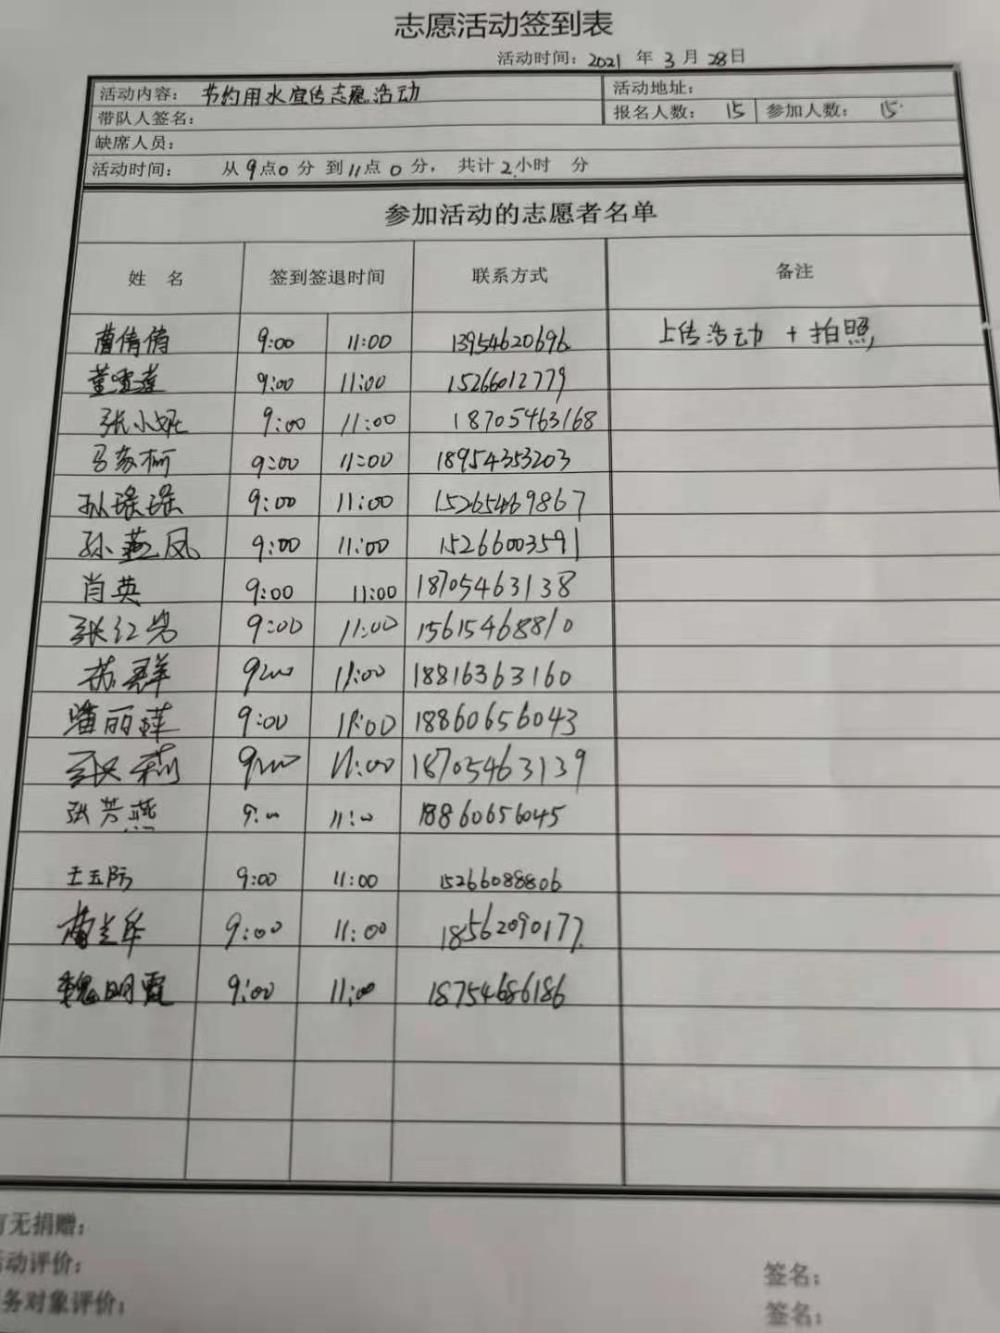 志愿活动签到表
活动时间：2021 年 3 月 28日
活动内容： 节约用水宣传志愿活动 活动地址：
带队人签名： 报名人数： 15 参加人数： 15
缺席人员：
活动时间： 从 9点0 分 到 11点 0 分， 共计 2小时 分
参加活动的志愿者名单
姓 名 签到签退时间 联系方式 备注
曹倩倩 9:00 11:00 13954620696 上传活动 + 拍照
董雪莲 9:00 11:00 15266012779
张小妮 9:00 11:00 18705463168
马 9:00 11:00 18954353203
孙瑶瑶 9:00 11:00 15265469867
孙燕凤 9:00 11:00 15266003591
肖英 9:00 11:00 18705463138
张红岩 9:00 11:00 15615468810
苏群 9:00 11:00 18816363160
潘丽萍 9:00 11:00 18860656043
张莉 9:00 11:00 18705463139
张芳燕 9:00 11:00 18860656045
王玉防 9:00 11:00 15266088806
兰华 9:00 11:00 18562090177
魏明霞 9:00 11:00 18754686186
有无捐赠：
活动评价： 签名：
务对象评价： 签名：